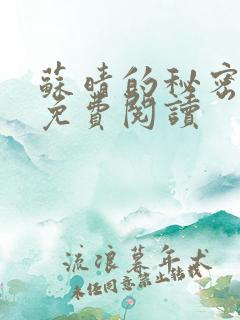 蘇晴的秘密
免費閱讀
流浪暮年犬
未經同意禁止轉載